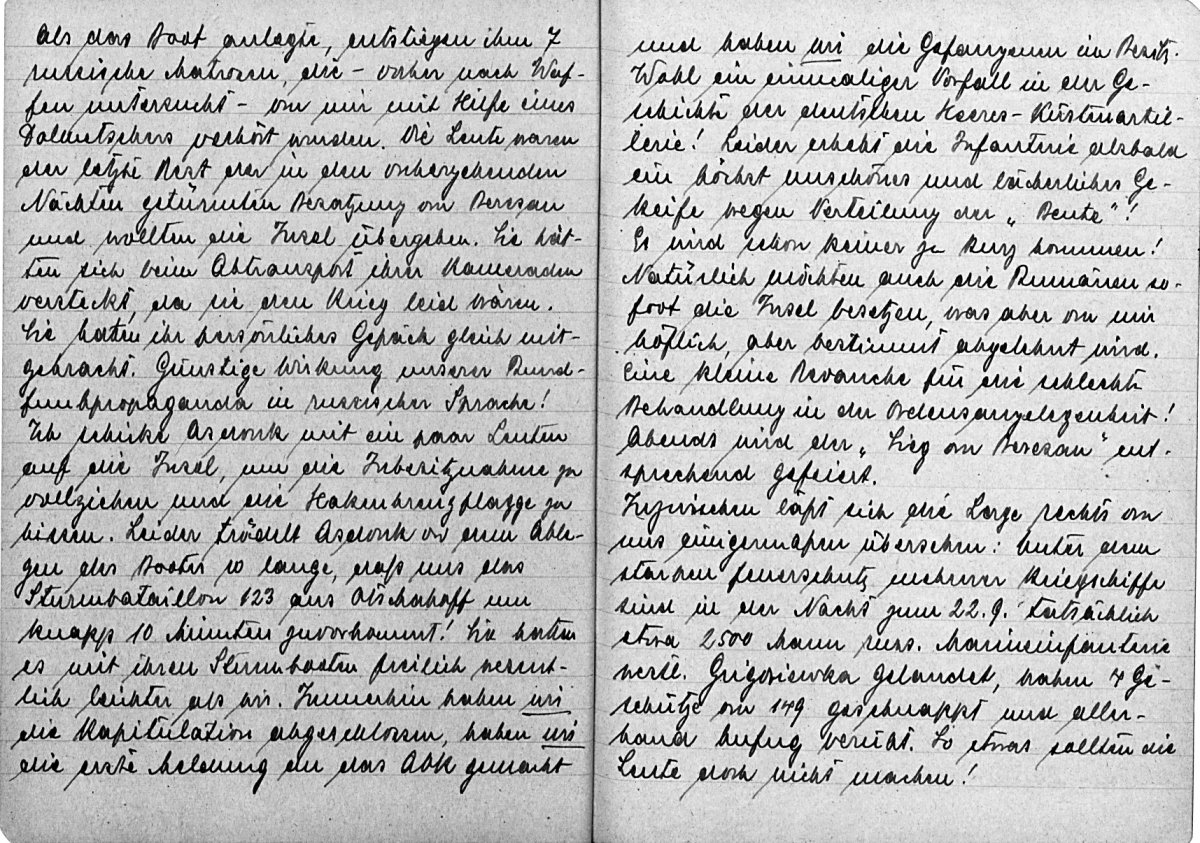 Als das Boot anlegte, entstiegen ihm 7
russische Matrosen, die – vorher nach Waf-
fen untersucht – von mir mit Hilfe eines
Dolmetschers verhört wurden. Die Leute waren
der letzte Rest der in den vorhergehenden
Nächten getürmten Besatzung von Beresan
und wollten die Insel übergeben. Sie hät-
ten sich beim Abtransport ihrer Kameraden
versteckt, da sie den Krieg leid wären.
Sie hatten ihr persönliches Gepäck gleich mit-
gebracht. Günstige Wirkung unserer Rund-
funkpropaganda in russischer Sprache!
Ich schicke Asdonk mit ein paar Leuten
auf die Insel, um die Inbesitznahme zu
vollziehen und die Hakenkreuzflagge zu
hissen. Leider trödelt Asdonk vor dem Able-
gen des Bootes so lange, daß uns das
Sturmbataillon 123 aus Otschakoff um
knapp 10 Minuten zuvorkommt! Sie hatten
es mit ihren Sturmbooten freilich wesent-
lich leichter als wir. Immerhin haben wir
die Kapitulation abgeschlossen, haben wir
die erste Meldung an das AOK gemacht
und haben wir die Gefangenen im Besitz.
Wohl ein einmaliger Vorfall in der Ge-
schichte der deutschen Heeres-Küstenartil-
lerie! Leider erhebt die Infanterie alsbald
ein höchst unschönes und lächerliches Ge-
keife wegen Verteilung der „Beute"!
Es wird schon keiner zu kurz kommen!
Natürlich möchten auch die Rumänen so-
fort die Insel besetzen, was aber von mir
höflich, aber bestimmt abgelehnt wird.
Eine kleine Revanche für die schlechte
Behandlung in der Ordensangelegenheit!
Abends wird der „Sieg von Beresan" ent-
sprechend gefeiert.
Inzwischen läßt sich die Lage rechts von
uns einigermaßen übersehen: Unter dem
starken Feuerschutz mehrerer Kriegschiffe
sind in der Nacht zum 22.9. tatsächlich
etwa 2500 Mann russ. Marineinfanterie
westl. Grigoriewka gelandet, haben 4 Ge-
schütze von 149 geschnappt und aller-
hand Unfug verübt. So etwas sollten die
Leute doch nicht machen!